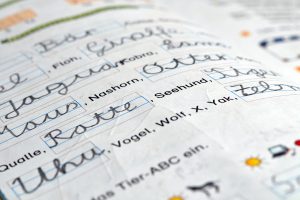 Bär
Floh, Giraffe
Jaguar, Kobra, Lama
Maus, Nashorn, Otter
Qualle, Ratte, Seehund, Tiger
Uhu, Vogel, Wolf, X, Yak, Zebra
das Tier-ABC ein.